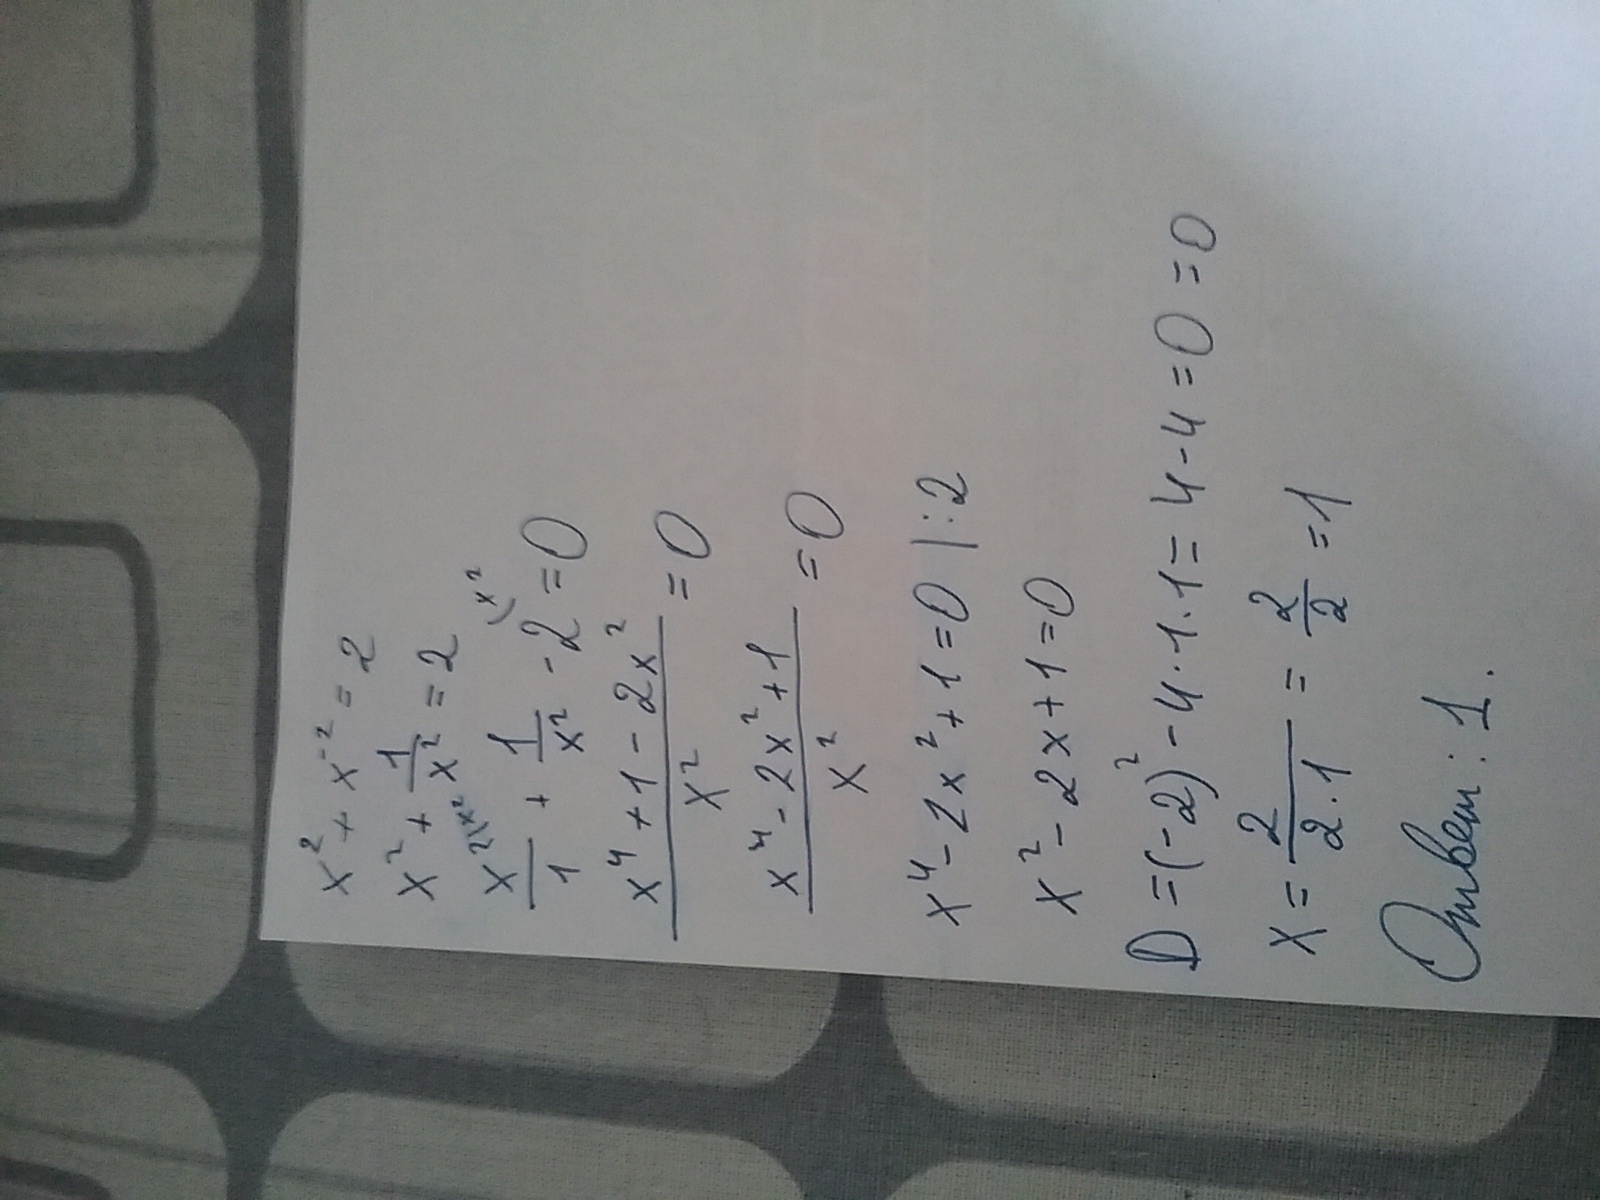 x² + x⁻² = 2
x² + 1/x² = 2
x²⁽ˣ²/1 + 1/x² - 2⁽ˣ² = 0
(x⁴ + 1 - 2x²)/x² = 0
(x⁴ - 2x² + 1)/x² = 0
x⁴ - 2x² + 1 = 0 |:2
x² - 2x + 1 = 0
D = (-2)² - 4·1·1 = 4 - 4 = 0 = 0
x = 2/(2·1) = 2/2 = 1
Ответ: 1.